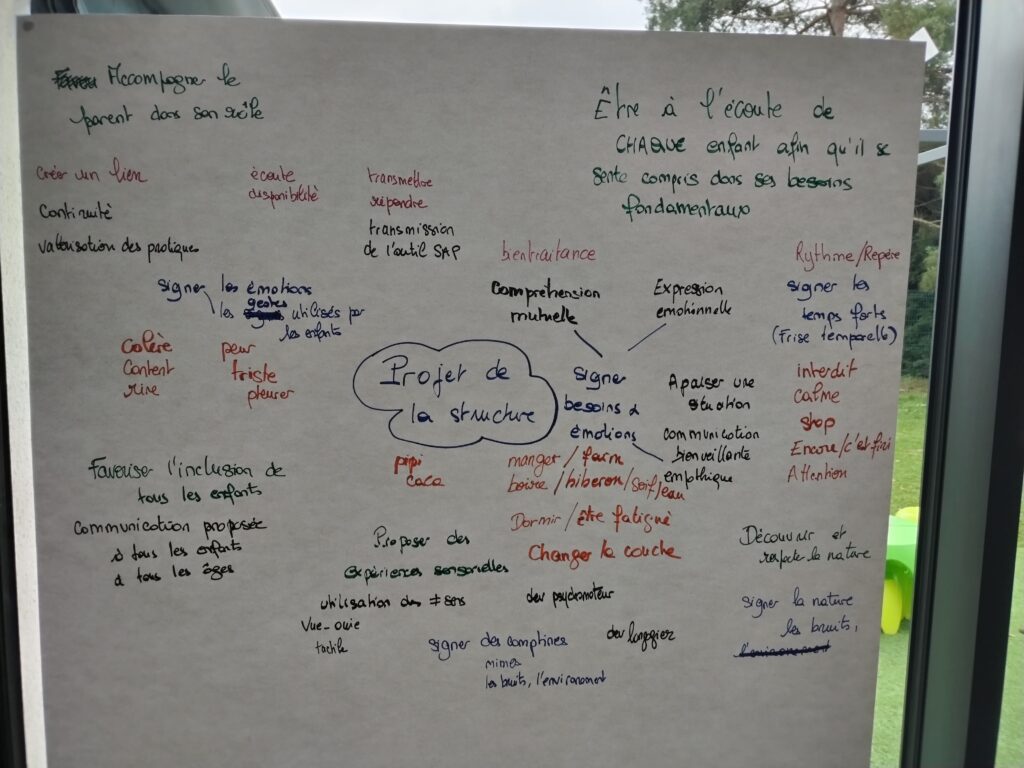 Accompagner le
parent dans son rôle
Être à l'écoute de
CHAQUE enfant afin qu'il se
sente compris dans ses besoins
fondamentaux
Créer un lien
Continuité
valorisation des pratiques
écoute
disponibilité
transmettre
répondre
transmission
de l'outil SAP
bientraitance
Rythme/Repère
signer les émotions
les gestes utilisés par
les enfants
Colère
Content
rire
peur
triste
pleurer
Compréhension
mutuelle
Expression
émotionnelle
signer les
temps forts
(Frise temporelle)
Projet de
la structure
signer
besoins &
émotions
Apaiser une
situation
communication
bienveillante
empathique
interdit
calme
stop
Encore/c'est fini
Attention
pipi
caca
manger/faim
boire/biberon/soif/eau
Dormir/être fatigué
Changer la couche
Favoriser l'inclusion de
tous les enfants
Communication proposée
à tous les enfants
à tous les âges
Proposer des
expériences sensorielles
utilisation des ≠ sens
Vue-ouie
tactile
dev psychomoteur
dev langagier
signer des comptines
mimes
les bruits, l'environement
Découvrir et
respecter la nature
signer la nature
les bruits,